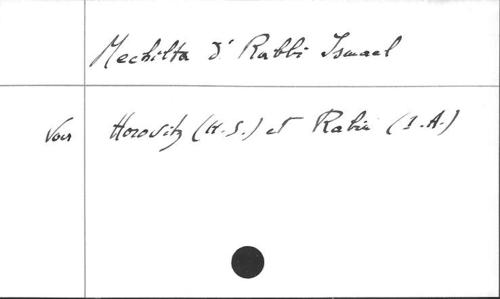 Mechilta d' Rabbi Ismael
Voir Horovitz (H.S.) et Rabin (I.A.)